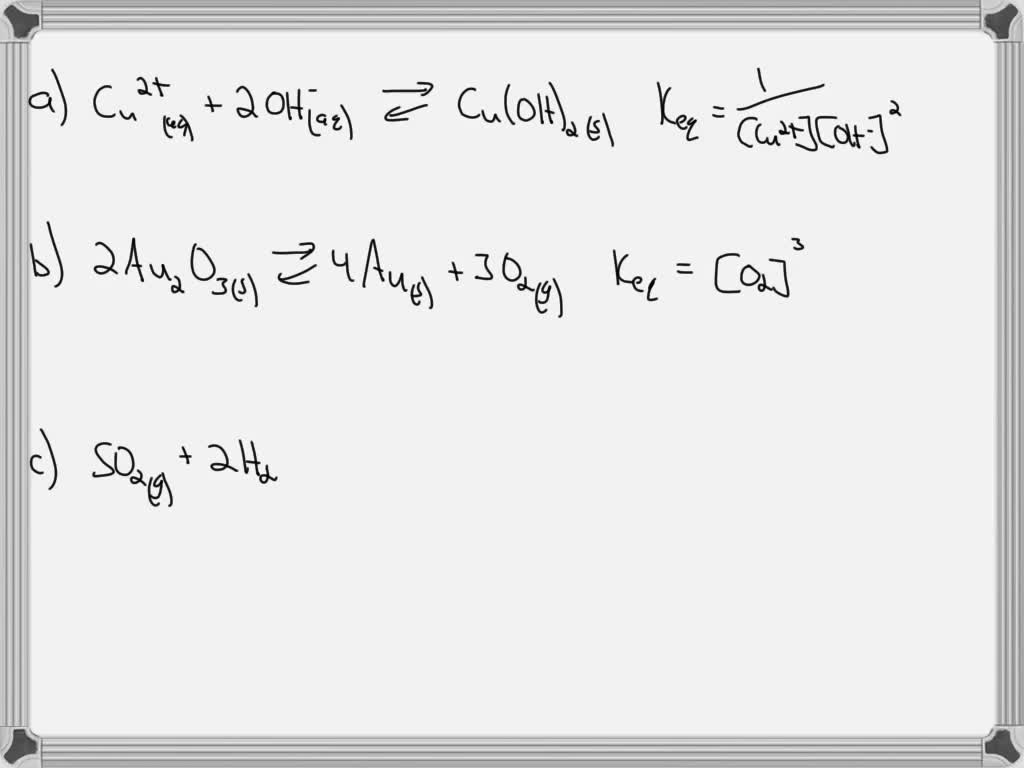 a) Cu²⁺(aq) + 2OH⁻(aq) ⇌ Cu(OH)₂(s) Keq = 1/[Cu²⁺][OH⁻]²
b) 2Au₂O₃(s) ⇌ 4Au(s) + 3O₂(g) Keq = [O₂]³
c) SO₂(g) + 2H₂